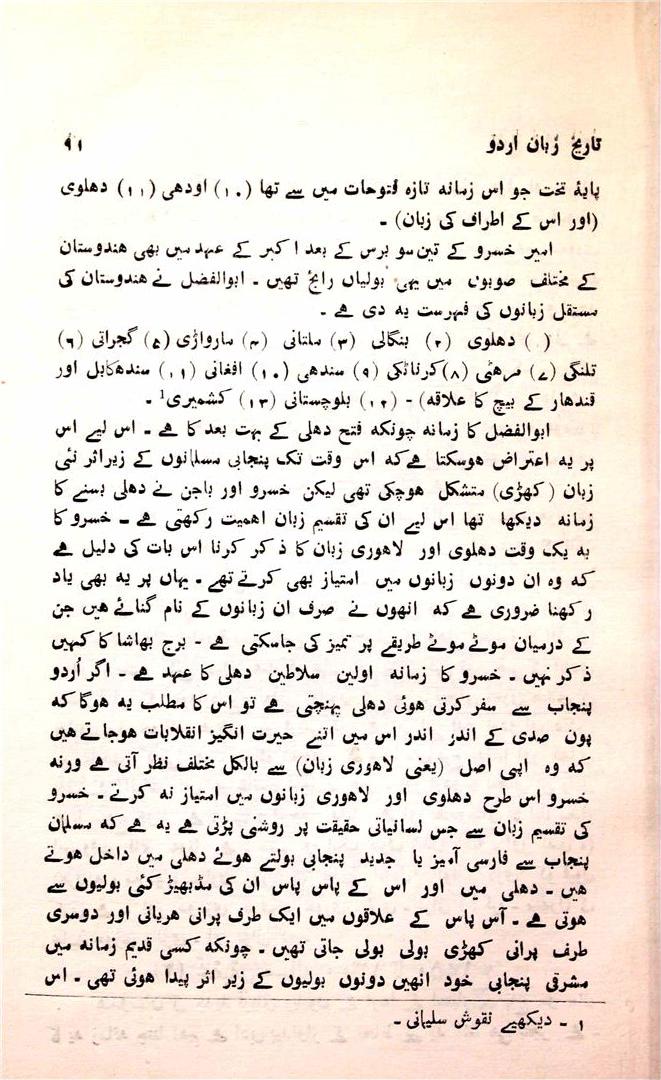 تاریخ زبان اردو ۹۱
پایۂ تخت جو اس زمانہ تازہ فتوحات میں سے تھا (۱۰) اودھی (۱۱) دھلوی
(اور اس کے اطراف کی زبان) ۔
امیر خسرو کے تین سو برس کے بعد اکبر کے عہد میں بھی ھندوستان
کے مختلف صوبوں میں یہی بولیاں رایج تھیں ۔ ابوالفضل نے ھندوستان کی
مستقل زبانوں کی فہرست یہ دی ھے ۔
( ) دھلوی (۲) بنگالی (۳) ملتانی (۴) مارواڑی (۵) گجراتی (۶)
تلنگی (۷) مرھٹی (۸) کرناٹکی (۹) سندھی (۱۰) افغانی (۱۱) سندھ کابل اور
قندھار کے بیچ کا علاقہ) - (۱۲) بلوچستانی (۱۳) کشمیری¹ ۔
ابوالفضل کا زمانہ چونکہ فتح دھلی کے بہت بعد کا ھے ۔ اس لیے اس
پر یہ اعتراض ھوسکتا ھے کہ اس وقت تک پنجابی مسلمانوں کے زیر اثر نئی
زبان (کھڑی) متشکل ھوچکی تھی لیکن خسرو اور باجن نے دھلی بسنے کا
زمانہ دیکھا تھا اس لیے ان کی تقسیم زبان اھمیت رکھتی ھے ۔ خسرو کا
بہ یک وقت دھلوی اور لاھوری زبان کا ذکر کرنا اس بات کی دلیل ھے
کہ وہ ان دونوں زبانوں میں امتیاز بھی کرتے تھے ۔ یہاں پر یہ بھی یاد
رکھنا ضروری ھے کہ انھوں نے صرف ان زبانوں کے نام گنائے ھیں جن
کے درمیان موٹے موٹے طریقے پر تمیز کی جاسکتی ھے - برج بھاشا کا کہیں
ذکر نہیں ۔ خسرو کا زمانہ اولین سلاطین دھلی کا عہد ھے ۔ اگر اُردو
پنجاب سے سفر کرتی ھوئی دھلی پہنچتی ھے تو اس کا مطلب یہ ھوگا کہ
پون صدی کے اندر اندر اس میں اتنے حیرت انگیز انقلابات ھوجاتے ھیں
کہ وہ اپنی اصل (یعنی لاھوری زبان) سے بالکل مختلف نظر آتی ھے ورنہ
خسرو اس طرح دھلوی اور لاھوری زبانوں میں امتیاز نہ کرتے ۔ خسرو
کی تقسیم زبان سے جس لسانیاتی حقیقت پر روشنی پڑتی ھے یہ ھے کہ مسلمان
پنجاب سے فارسی آمیز یا جدید پنجابی بولتے ھوئے دھلی میں داخل ھوتے
ھیں ۔ دھلی میں اور اس کے پاس پاس ان کی مڈبھیڑ کئی بولیوں سے
ھوتی ھے ۔ آس پاس کے علاقوں میں ایک طرف پرانی ھریانی اور دوسری
طرف پرانی کھڑی بولی بولی جاتی تھیں ۔ چونکہ کسی قدیم زمانہ میں
مشرقی پنجابی خود انھیں دونوں بولیوں کے زیر اثر پیدا ھوئی تھی ۔ اس
۱ ۔ دیکھیے نقوش سلیمانی ۔